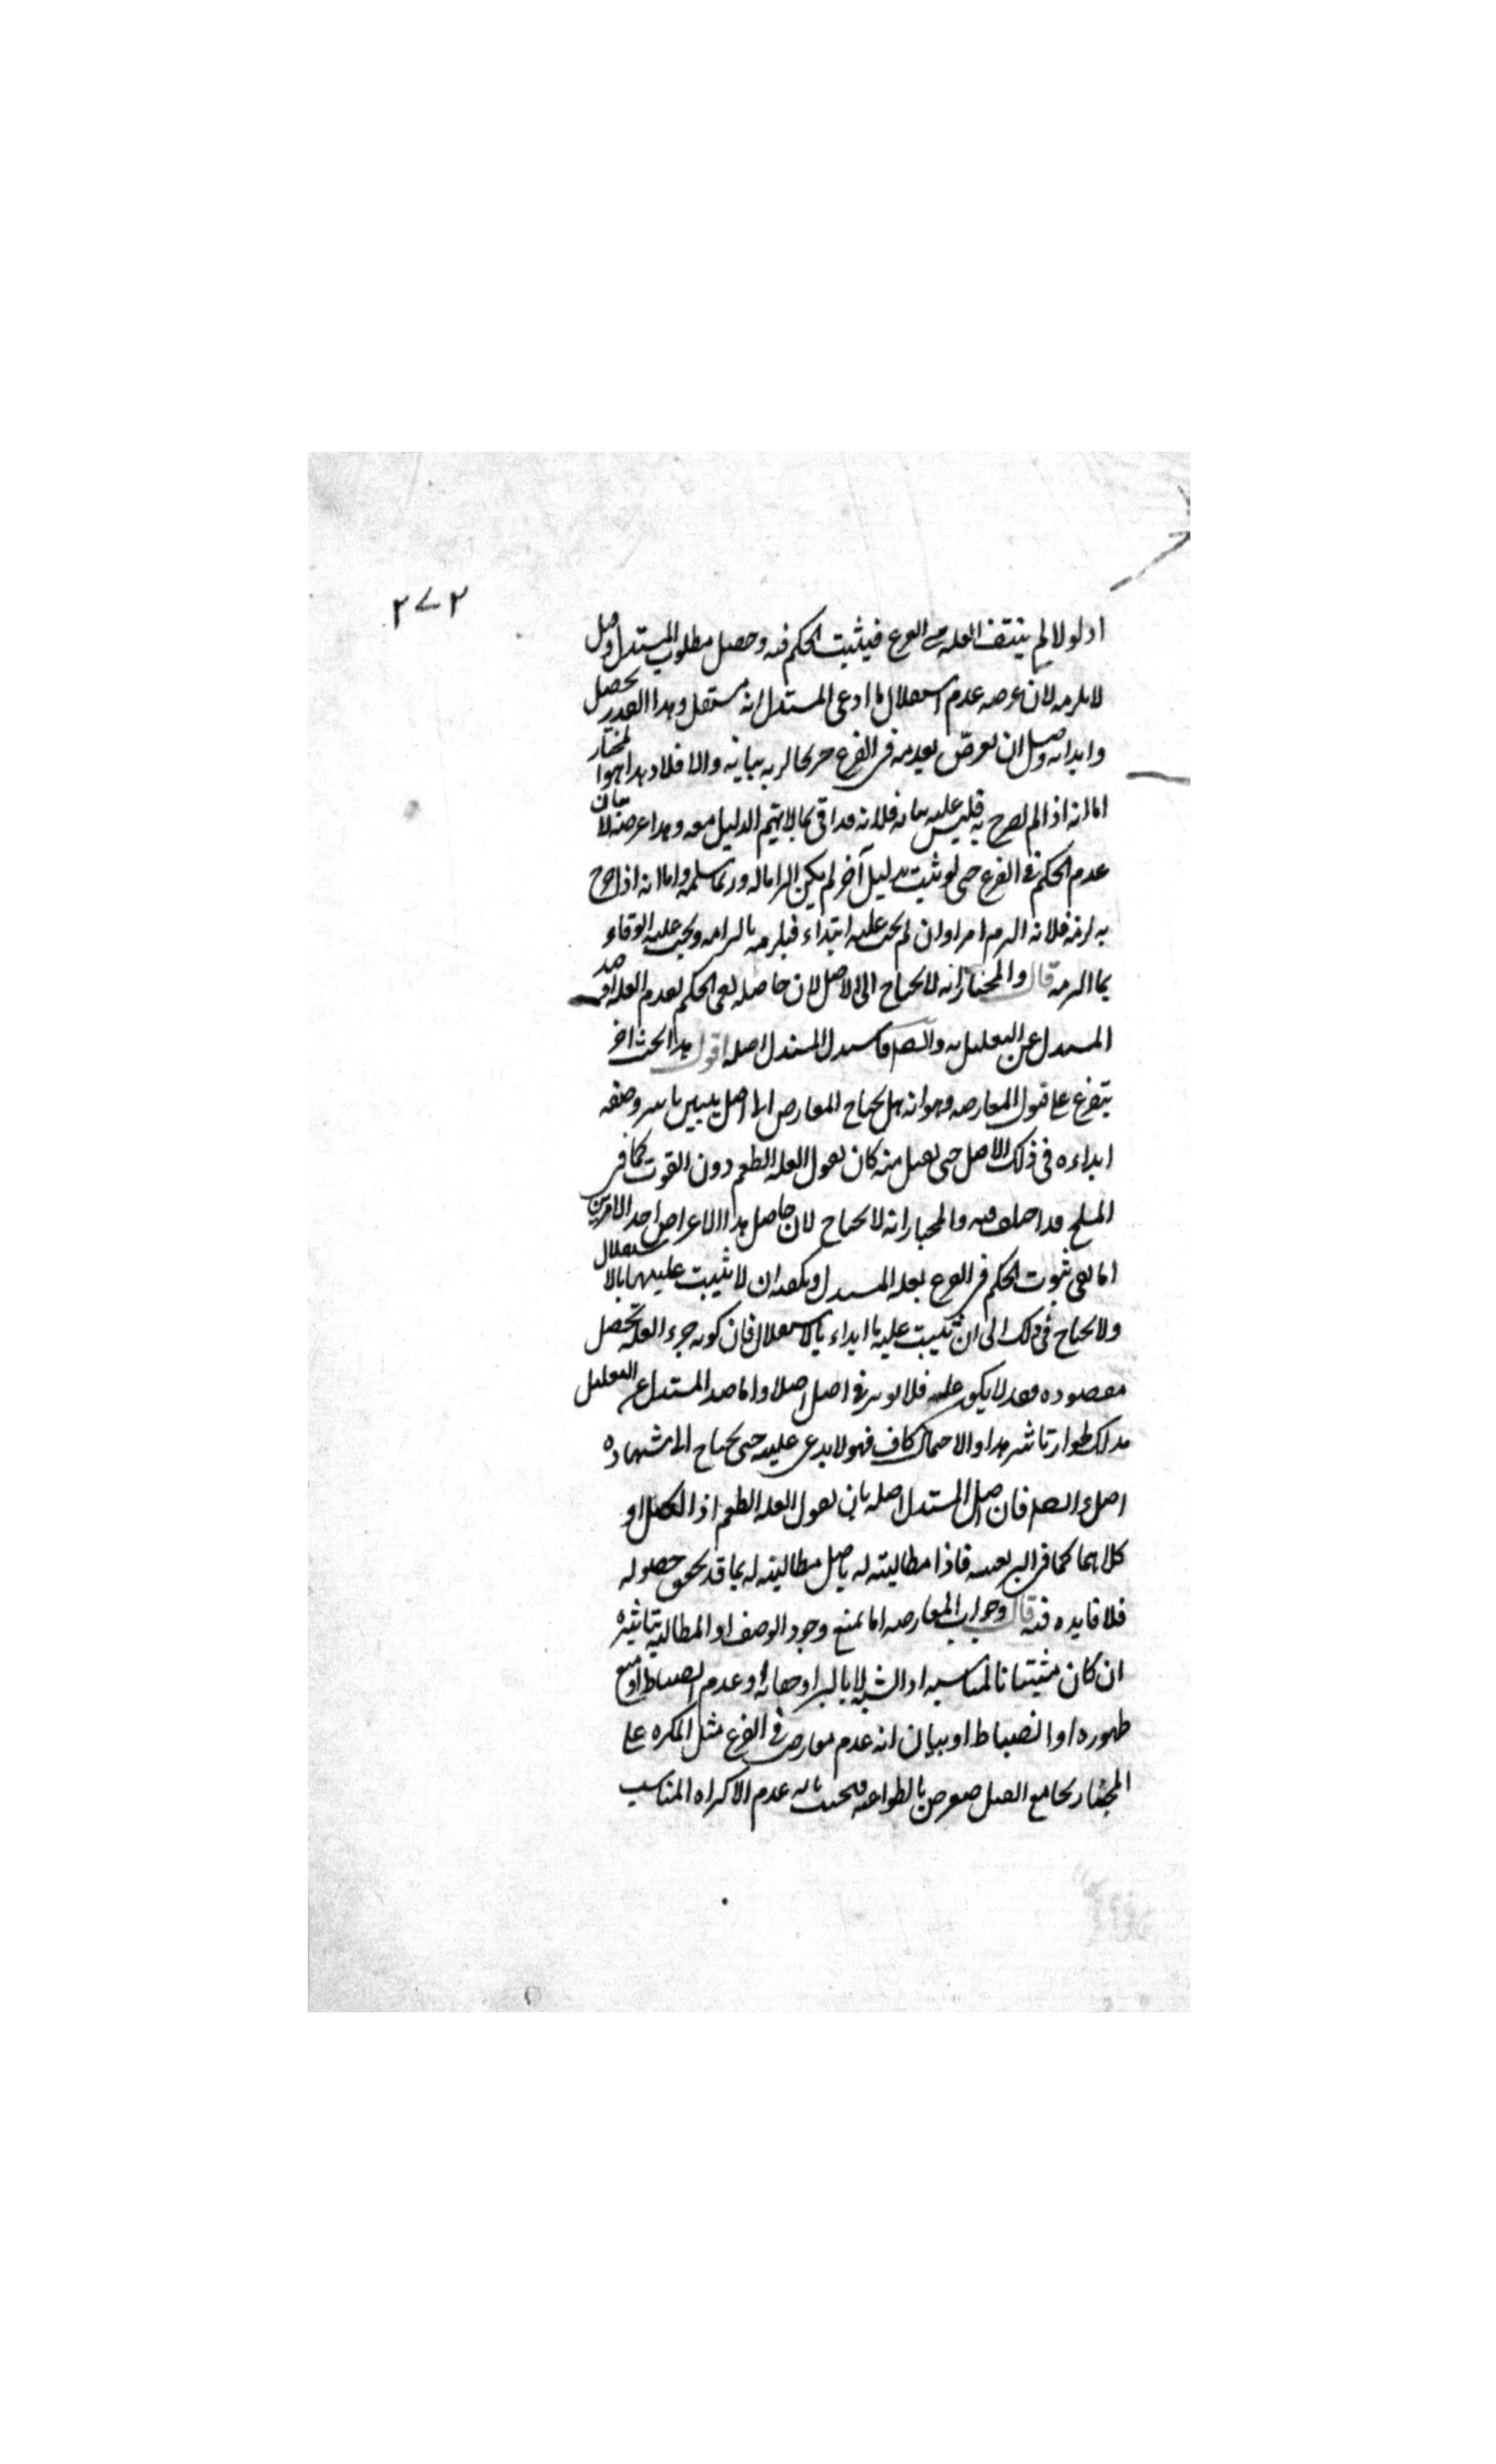 ٢٧٢
اذ لولا لم ينتف العله في الفرع فيثبت الحكم فيه وحصل مطلوب المستدل وقيل
لا يلزمه لان غرضه عدم استقلال ما ادعى المستدل انه مستقل وهذا القدر يحصل
وابدائه وقيل ان تعرض لعدمه في الفرع صريحا لزمه بيانه والا فلا وهذا هو المختار
اما انه اذا لم يصرح به فليس عليه بيانه فلانه قد اتى بما لا يتم الدليل معه وهذا غرضه لا بيان
عدم الحكم في الفرع حتى لو ثبت بدليل آخر لم يكن الزاما له وربما سلمه واما انه اذا صرح
به لزمه فلانه التزم امرا وان لم يجب عليه ابتداء فيلزمه بالتزامه ويجب عليه الوفاء
بما التزمه قال والمختار انه لا يحتاج الى الاصل لان حاصله نفي الحكم لعدم العله او صد
المستدل عن التعليل به وايضا فاصل المستدل اصله اقول هذا بحث اخر
يتفرع على قبول المعارضه وهو انه هل يحتاج المعارض الى اصل يبين تاثير وصفه
ابداءه في ذلك الاصل حتى يقبل منه كان يقول العله الطعم دون القوت كما في
الملح قد اختلف فيه والمختار انه لا يحتاج لان حاصل هذا الاعتراض احد الامرين
اما نفي ثبوت الحكم في الفرع بعله المستدل ويكفيه ان لا تثبت عليتها بالاستقلال
ولا يحتاج في ذلك الى ان تثبت عليه ما ابداء بالاستقلال فان كونه جزء العله يحصل
مقصوده فقد لا يكون عله فلا يوثر في اصل اصلا واما صد المستدل عن التعليل
بذلك لجواز تاثير هذا والاحتمال كاف فهو لا يدعي عليته حتى يحتاج الى شهاده
اصل وايضا فان اصل المستدل اصله بان يقول العله الطعم اذ الكيل او
كلاهما كما في البر بعينه فاذا مطالبته له باصل مطالبته له بما قد تحقق حصوله
فلا فايده فيه قال وجواب المعارضه اما بمنع وجود الوصف او المطالبه بتاثيره
ان كان مثبتا بالمناسبه او الشبه لا بالسبر او خفائه او عدم انضباطه او منع
ظهوره او انضباطه او بيان انه عدم معارض في الفرع مثل المكره على
المختار بجامع القتل فيعترض بالطواعيه فيجيب بانه عدم الاكراه المناسب